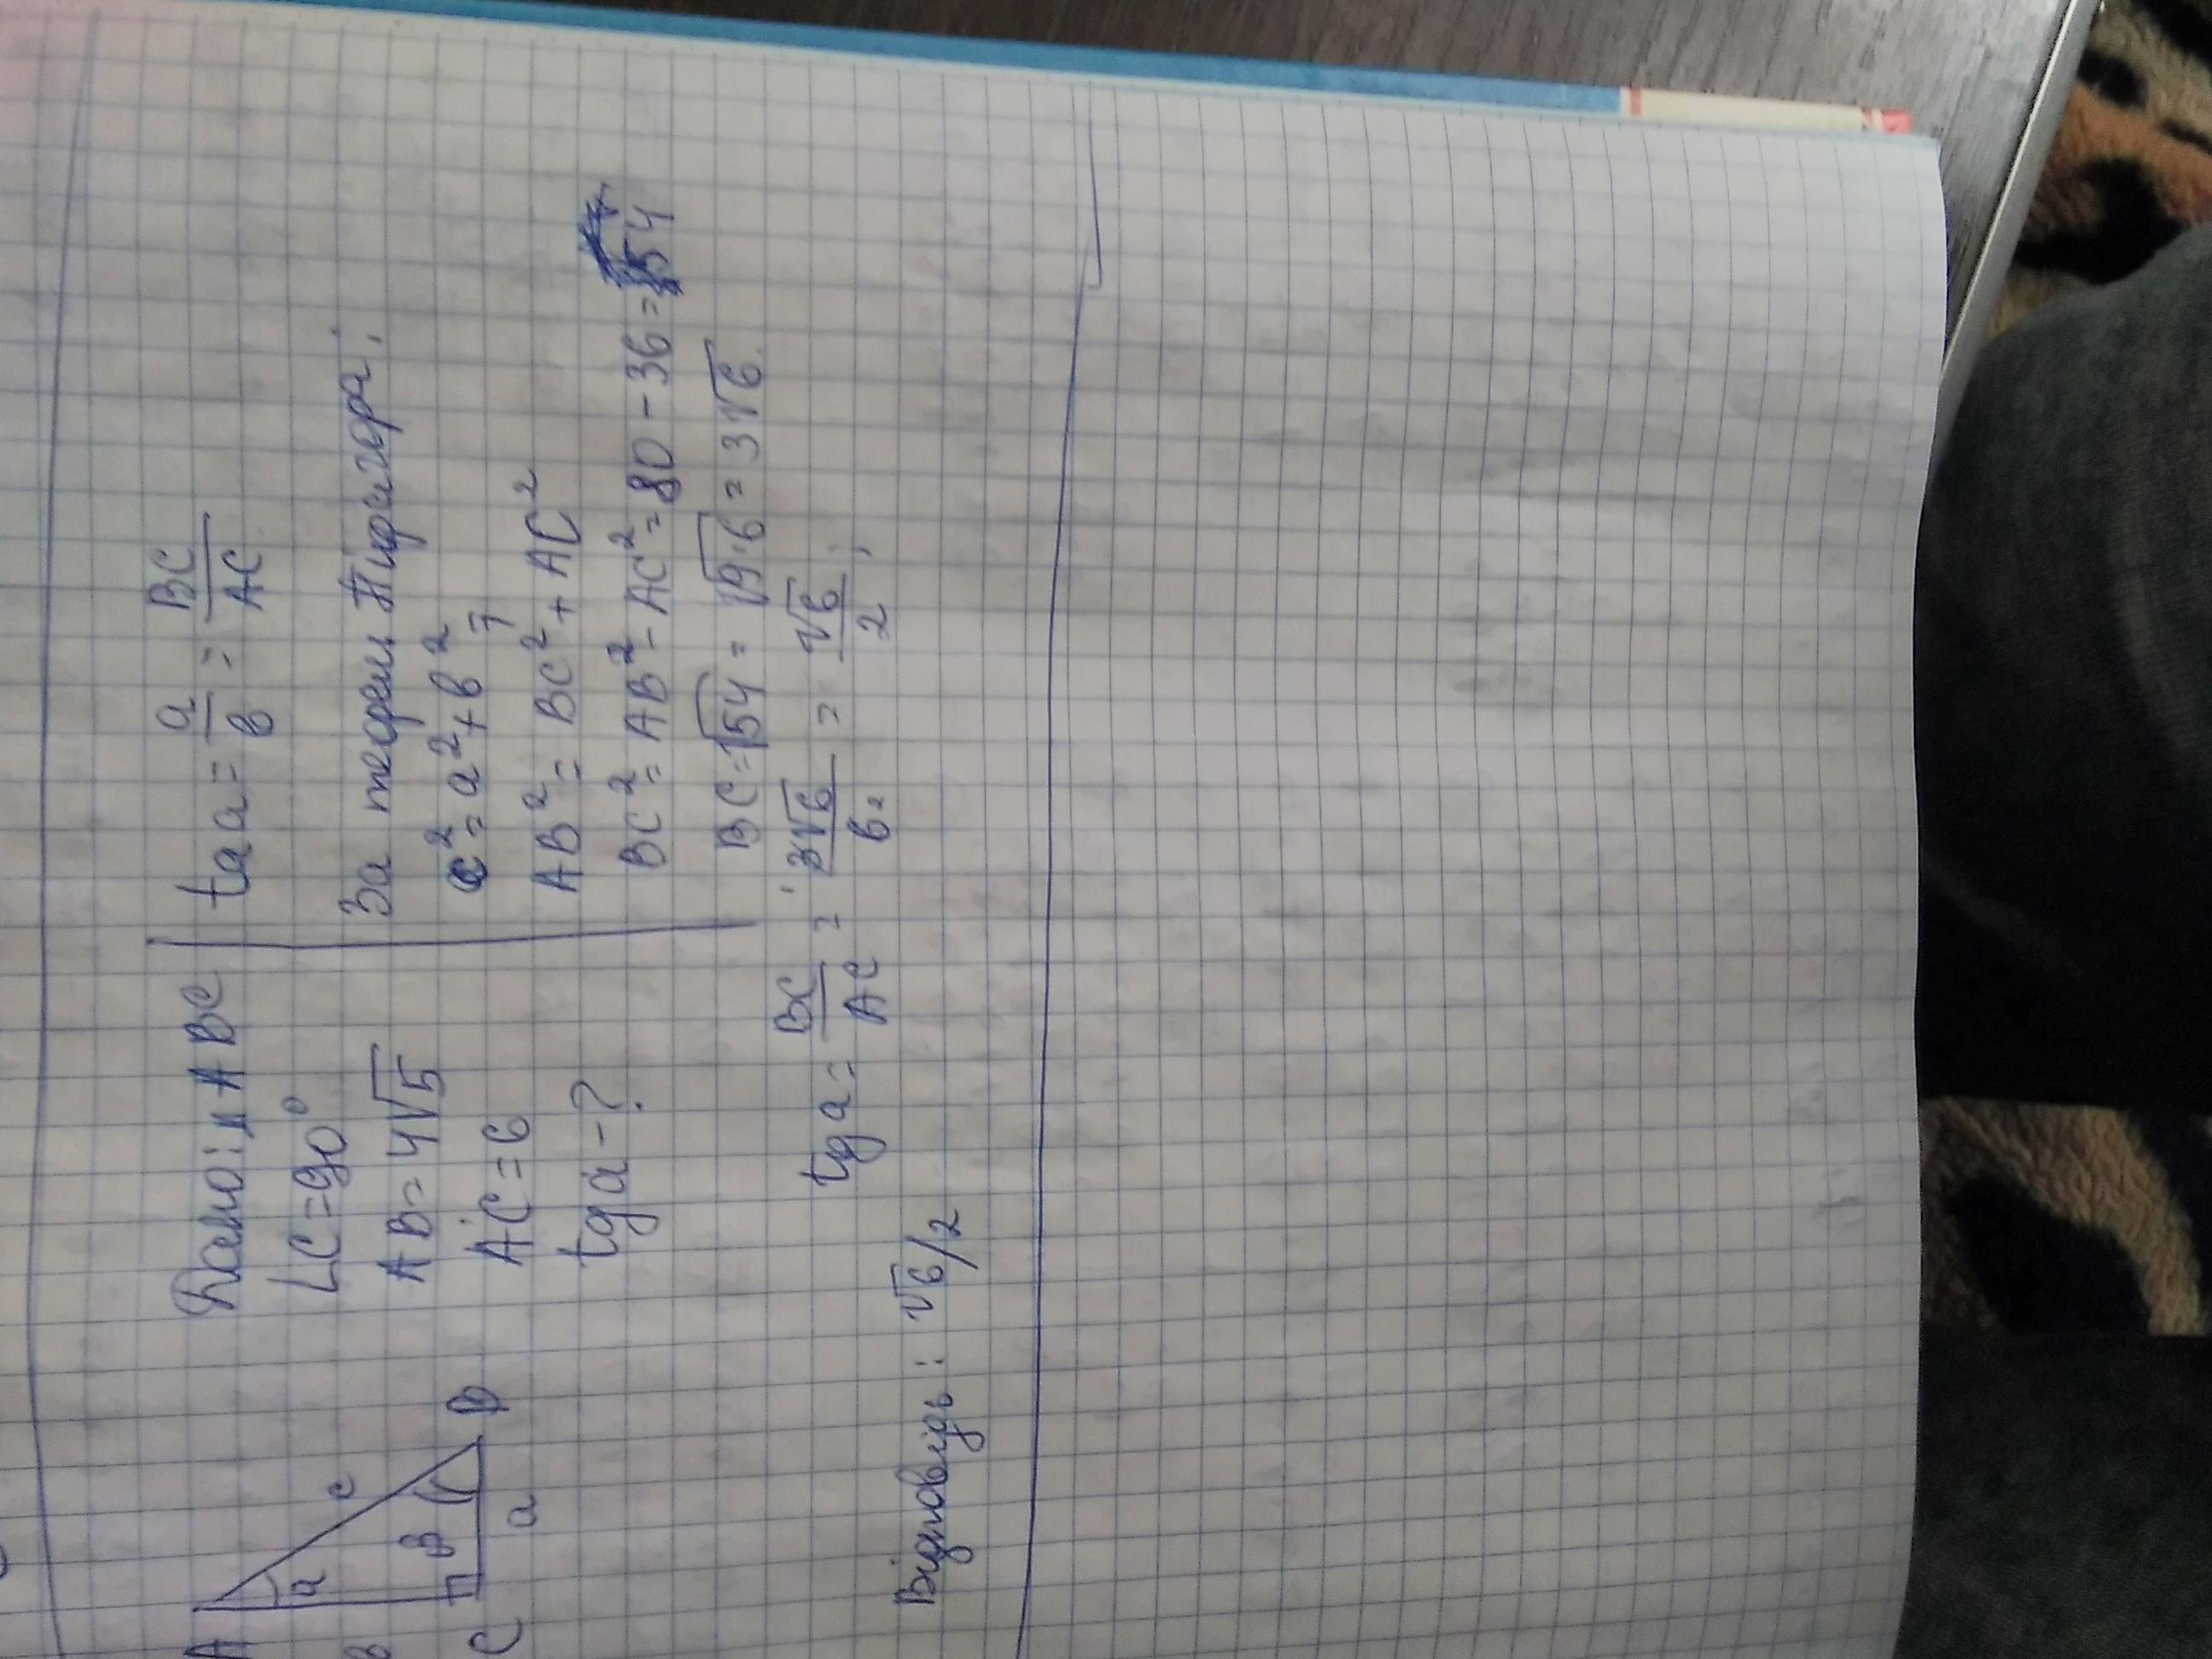 A
a
c
B
в
C
a
B
Дано: ABC
∠C=90°
AB=4√5
AC=6
tg a-?
tg a = a/в = BC/AC
За теорем Піфагора:
c²=a²+в²
AB²=BC²+AC²
BC²=AB²-AC²=80-36=54
BC=√54=√9·6=3√6
tg a = BC/AC = 3√6/6₂ = √6/2;
Відповідь: √6/2